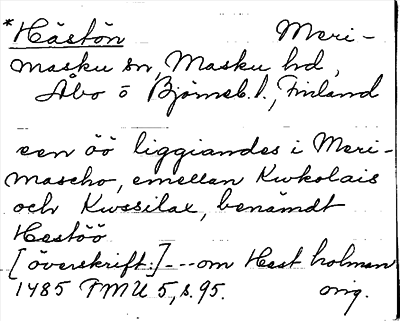 *Hästön Meri-
masku sn, Masku hd,
Åbo o Björneb. l., Finland
een öö liggiandes i Meri-
mascho, emellan Kwkolais
och Kwssilax, benämdt
Hestöö
[överskrift:] --- om Hest holmen
1485 FMU 5, s. 95. orig.